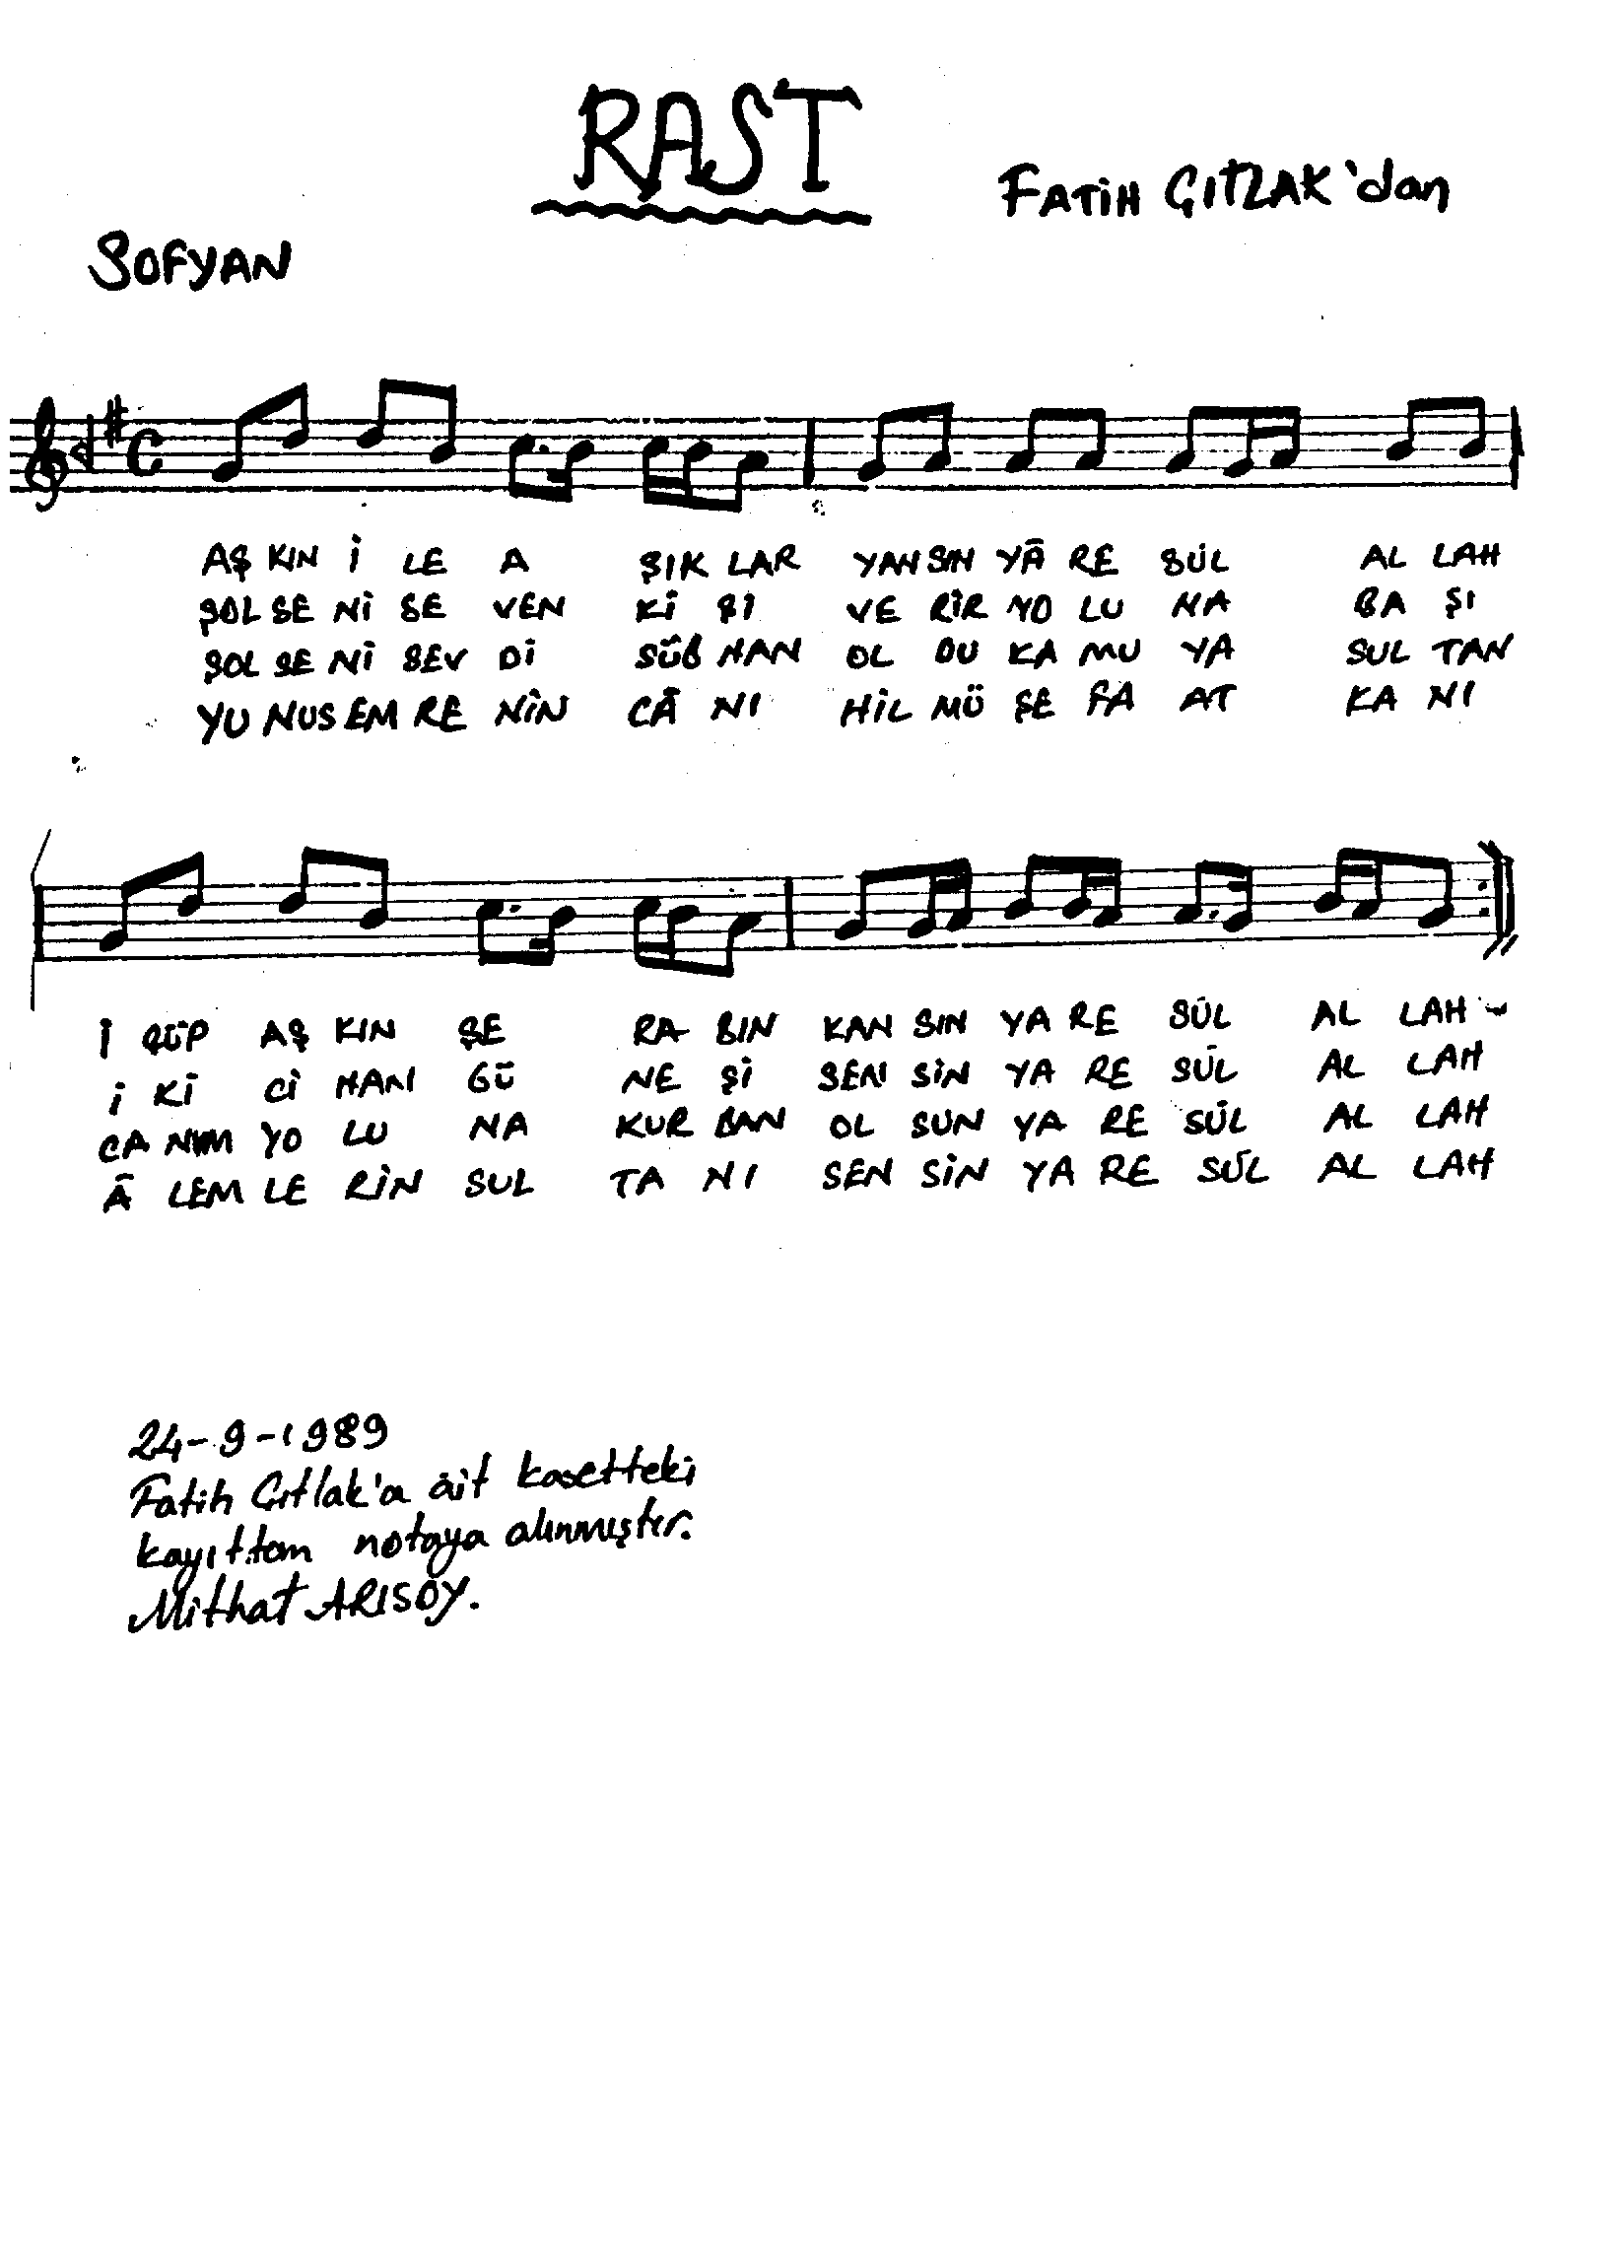 RAST
FATİH ÇITLAK'dan
SOFYAN
AŞ KIN İ LE A ŞIK LAR YAN SIN YÂ RE SÛL AL LAH
ŞOL SE Nİ SE VEN Kİ Şİ VE RİR YO LU NA BA ŞI
ŞOL SE Nİ SEV Dİ SÜB HAN OL DU KA MU YA SUL TAN
YU NUS EM RE NİN CÂ NI HİL MÜ ŞE FA AT KA NI
İ ÇÜP AŞ KIN ŞE RA BIN KAN SIN YA RE SÛL AL LAH
İ Kİ Cİ HAN GÜ NE Şİ SEN SİN YA RE SÛL AL LAH
CA NIM YO LU NA KUR BAN OL SUN YA RE SÛL AL LAH
Â LEM LE RİN SUL TA NI SEN SİN YA RE SÛL AL LAH
24-9-1989
Fatih Çıtlak'a âit kasetteki
kayıttan notaya alınmıştır.
Mithat ARISOY.